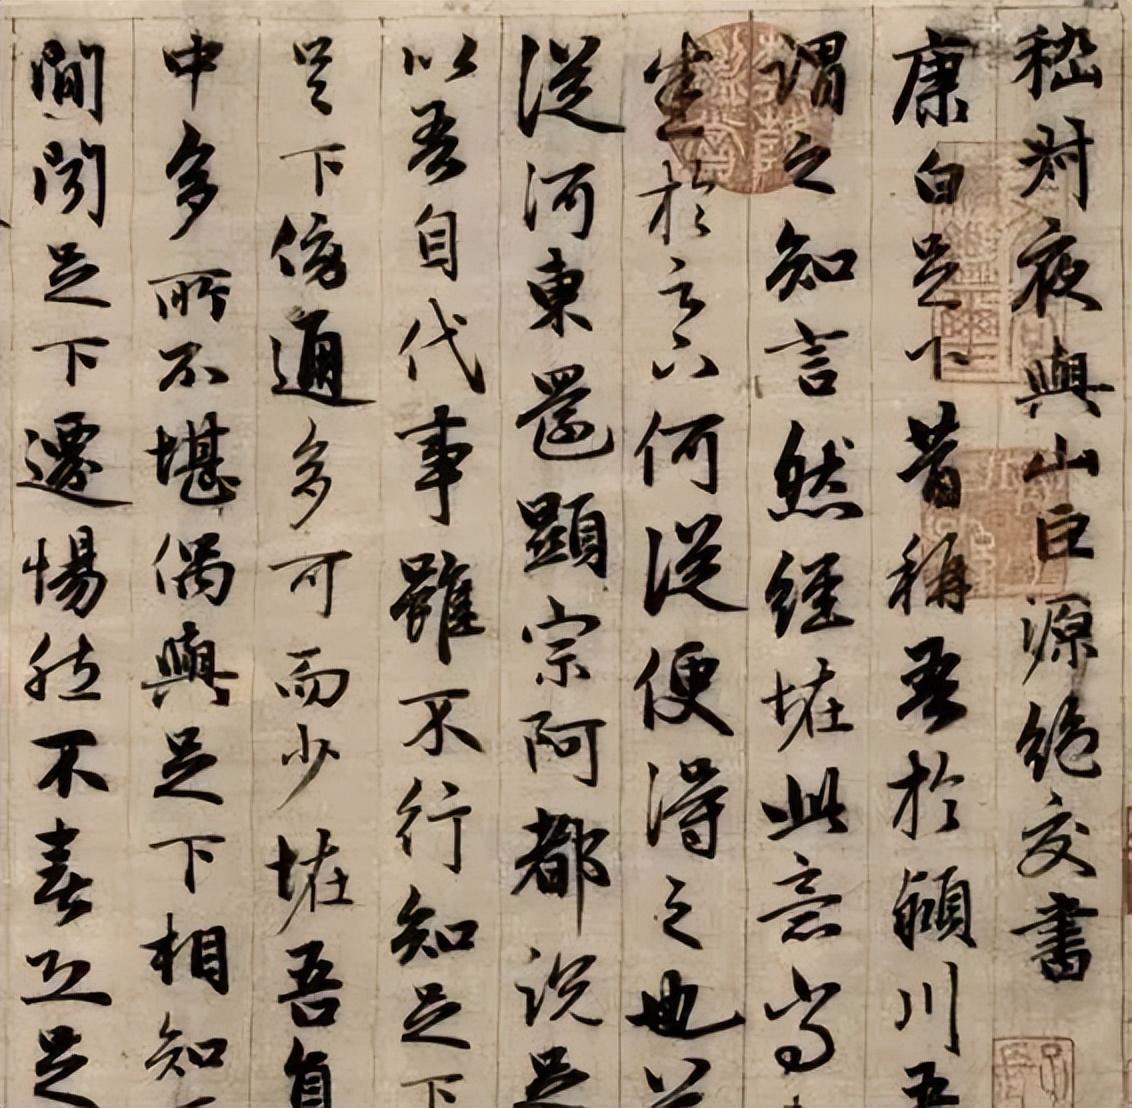 嵇叔夜與山巨源絶交書
康白足下昔稱吾於潁川吾
謂之知言然經怪此意尚
於足下何從便得之也前
從河東還顯宗阿都說足
以吾自代事雖不行知足下
足下傍通多可而少怪吾直
中多所不堪偶與足下相知
間聞足下遷惕然不喜恐足